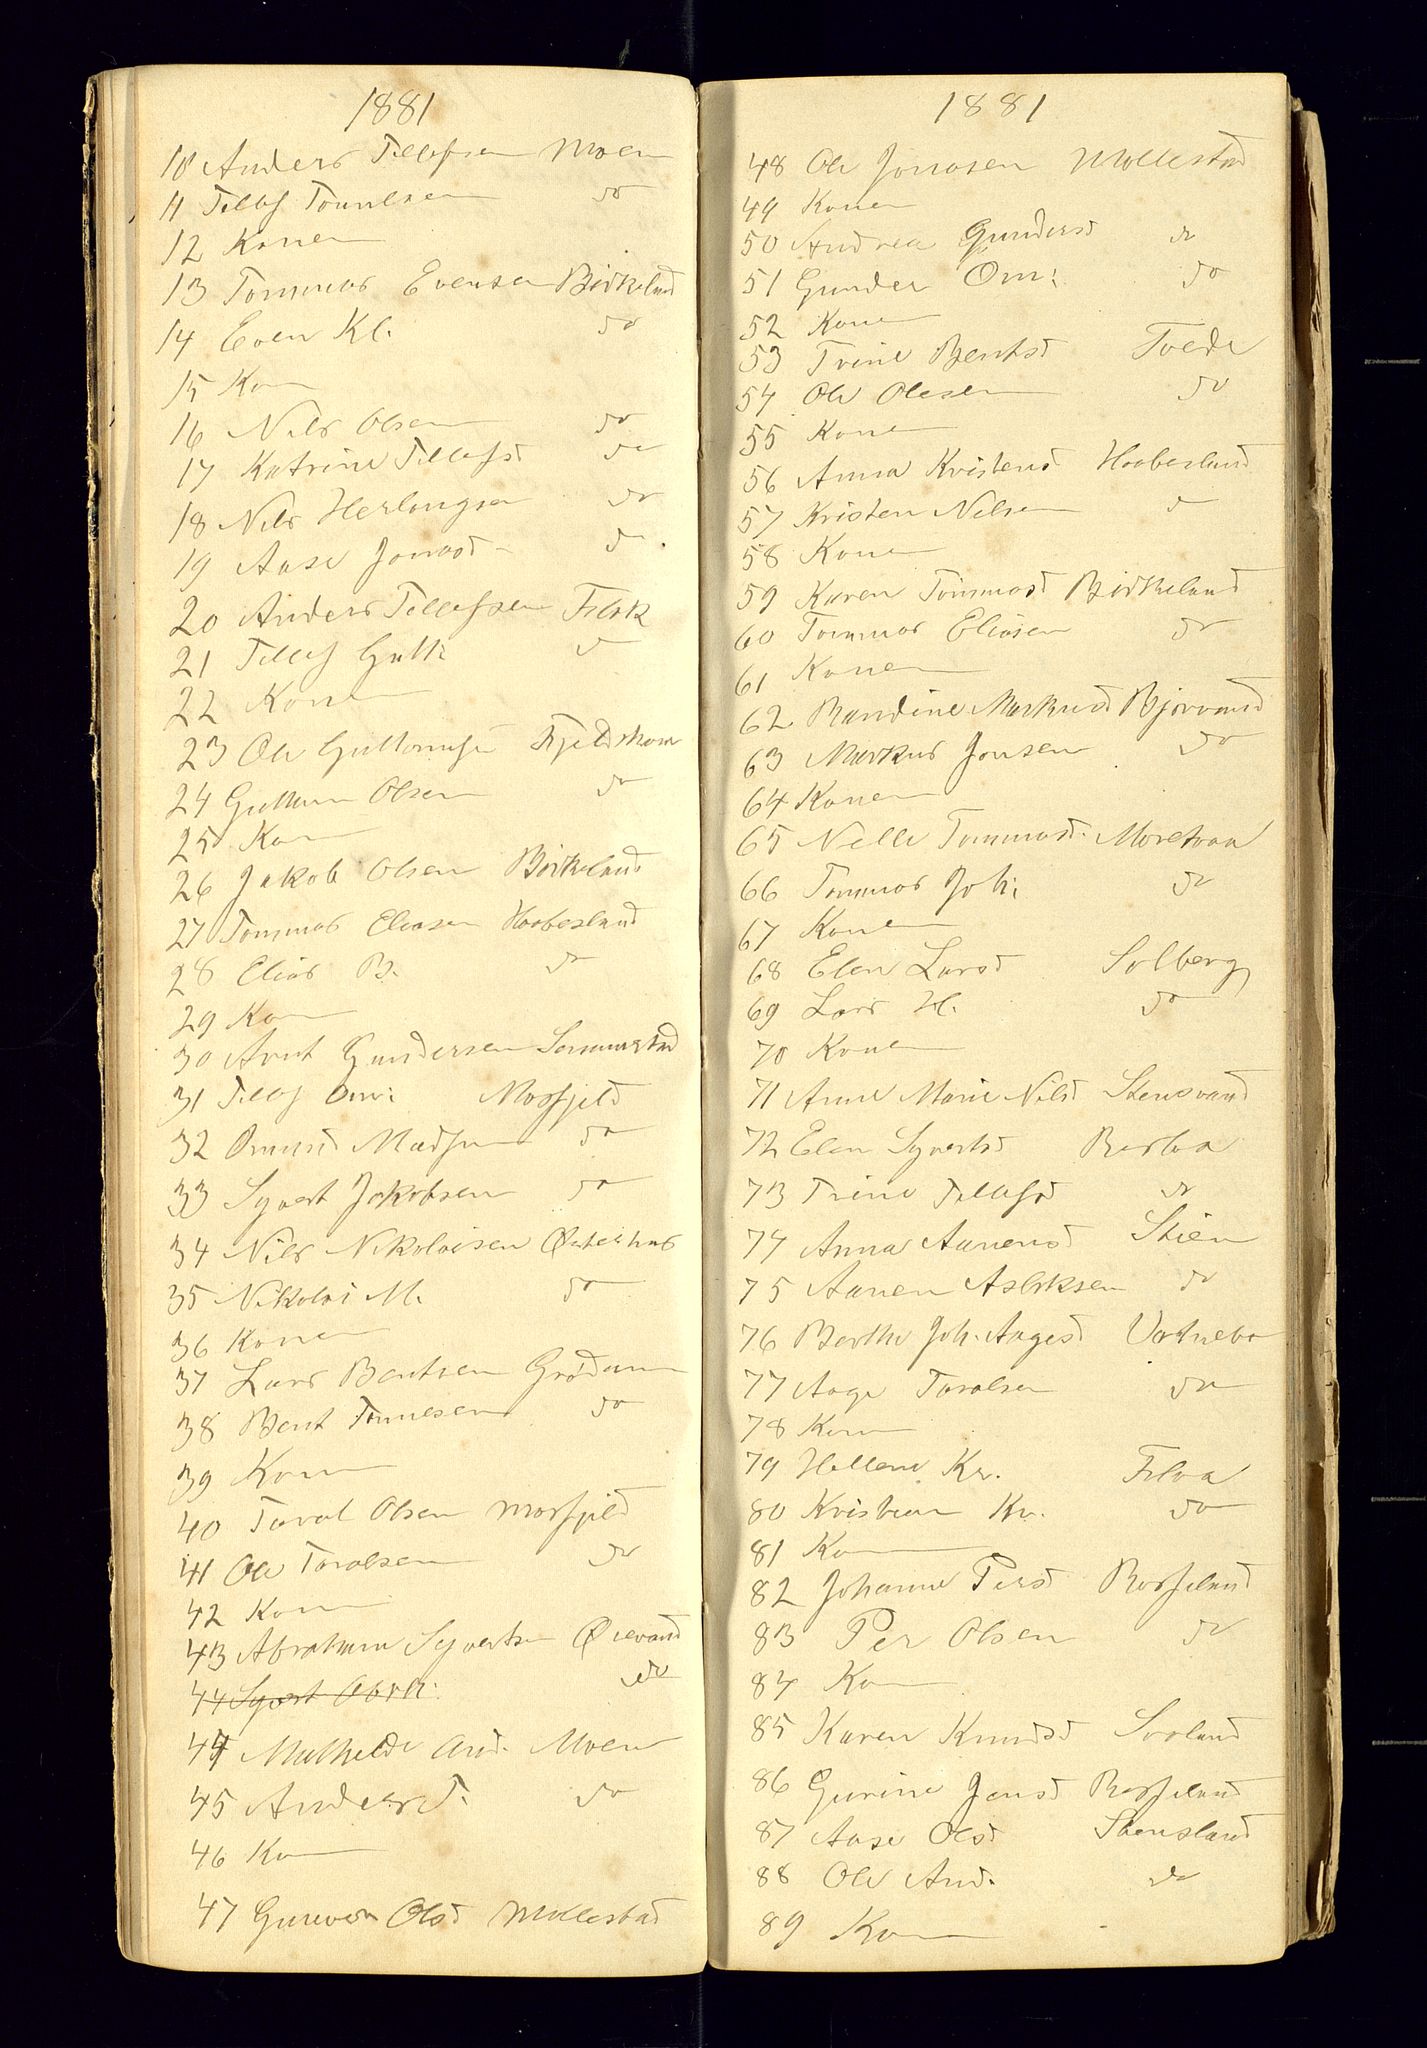 1881
10 Anders Tellefsen Moen
11 Tellef Tomesen do
12 Konen
13 Tommas Evensen Birkeland
14 Even Kl. do
15 Kon
16 Nils Olsen do
17 Katrine Tellefsd do
18 Nils Herlougsen do
19 Aase Jonasd do
20 Anders Tellefsen Flak
21 Tellef Gutt: do
22 Konen
23 Ole Guttormsen Fjeldskaar
24 Guttorm Olsen do
25 Kon
26 Jakob Olsen Birkeland
27 Tommas Eliasen Haabesland
28 Elias B. do
29 Kon
30 Arnt Gundersen
31 Tellef Om: Mosfjeld
32 Omund Madsen do
33 Syvert Jakobsen do
34 Nils Nikolaisen Østerhus
35 Nikolai M. do
36 Konen
37 Lars Bentsen Grødum
38 Bent Tomesen do
39 Kon
40 Taral Olsen Mosfjeld
41 Ole Taralsen do
42 Kon
43 Abraham Syvertsen Øievand
44 Syvert Abrh: do
44 Mathilde And. Moen
45 Anders T. do
46 Kon
47 Olsd Mollestad
1881
48 Ole Jonasen Mollestad
49 Konen
50 Andrea Gundersd do
51 Gunder Om: do
52 Konen
53 Trine Bentsd Tvede
54 Ole Olesen do
55 Konen
56 Anna Kristensd Haabesland
57 Kristen Nilsen do
58 Konen
59 Karen Tommasd Birkeland
60 Tommas Eliasen do
61 Konen
62 Randine Markusd Bjorvand
63 Markus Jensen do
64 Konen
65 Nelle Tommasd. Moretraa
66 Tommas Joh: do
67 Konen
68 Elen Larsd Solberg
69 Lars H. do
70 Konen
71 Anne Marie Nilsd Stensvand
72 Elen Syvertsd
73 Trine Tellefsd do
74 Anna Aanensd Stien
75 Aanen Aslaksen do
76 Berthe Joh. Aagesd Vatnebo
77 Aage Taralsen do
78 Kon
79 Hellene Kr. Flaa
80 Kristian Kr. do
81 Kon
82 Johanne Persd Rosseland
83 Per Olsen do
84 Kon
85 Karen Knudsd Soreland
86 Gurine Jensd Rosseland
87 Aase Olsd Stensland
88 Ole And. do
89 Kon